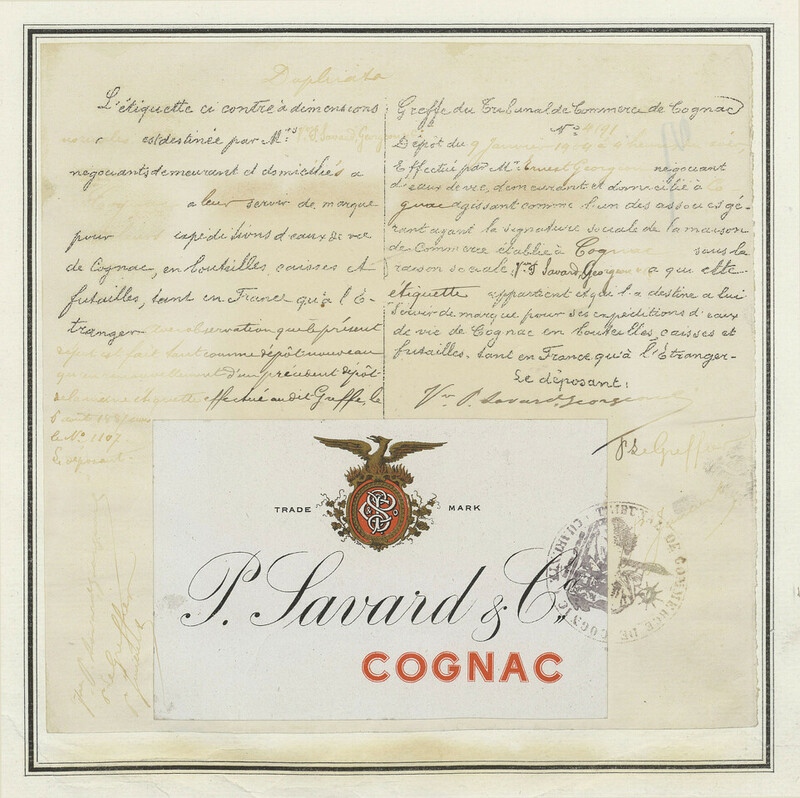 Duplicata
L'étiquette ci contre à dimensions
est destinée par M.rs Vve P. Savard, Georgeon
négociants demeurant et domiciliés a
a leur servir de marque
pour leurs expéditions d'eaux de vie
de Cognac, en bouteilles, caisses et
futailles, tant en France qu'à l'É-
tranger. observation que le présent
dépôt est fait tant comme dépôt nouveau
qu'en d'un précédent dépôt
de la même étiquette effectué au dit Greffe, le
8 août 1887 sous
le No. 1107
Cognac.
Greffe du Tribunal de Commerce de Cognac
No. 2191
Dépôt du 9 Janvier
Effectué par M. Ernest Georgeon négociant
d'eaux de vie, demeurant et domicilié à Co
gnac agissant comme l'un des associés gé-
rant ayant la signature sociale de la maison
de Commerce établie à Cognac sous la
raison sociale: Vve P. Savard, Georgeon a qui cette
étiquette appartient et qui l'a destine a lui
servir de marque pour ses expéditions d'eaux
de vie de Cognac en bouteilles, caisses et
futailles. tant en France qu'à l'Étranger-
Le déposant:
Vve P. Savard, Georgeon
Le Greffier
TRADE MARK
P. Savard & Co.
COGNAC
TRIBUNAL DE COMMERCE DE COGNAC (CHARENTE)